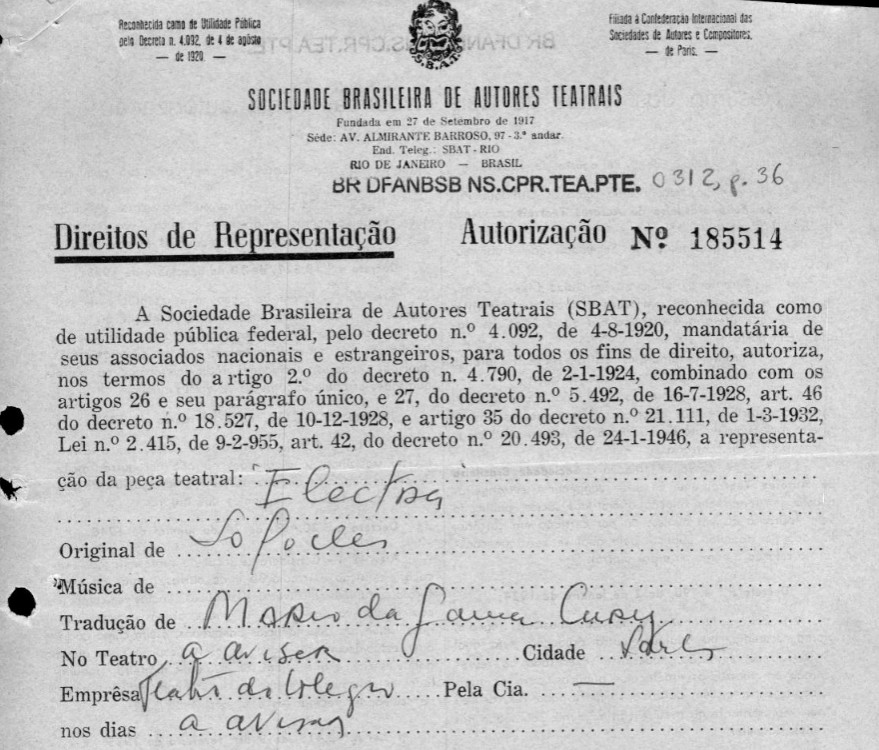 Reconhecida como de Utilidade Pública
pelo Decreto n. 4.092, de 4 de agôsto
— de 1920 —
S.B.A.T.
Filiada à Confederação Internacional das
Sociedades de Autores e Compositores,
— de Paris. —
SOCIEDADE BRASILEIRA DE AUTORES TEATRAIS
Fundada em 27 de Setembro de 1917
Séde: AV. ALMIRANTE BARROSO, 97 - 3.º andar.
End. Teleg.: SBAT - RIO
RIO DE JANEIRO — BRASIL
BR DFANBSB NS.CPR.TEA.PTE. 0312, p. 36
Direitos de Representação Autorização Nº 185514
A Sociedade Brasileira de Autores Teatrais (SBAT), reconhecida como
de utilidade pública federal, pelo decreto n.º 4.092, de 4-8-1920, mandatária de
seus associados nacionais e estrangeiros, para todos os fins de direito, autoriza,
nos termos do artigo 2.º do decreto n. 4.790, de 2-1-1924, combinado com os
artigos 26 e seu parágrafo único, e 27, do decreto n.º 5.492, de 16-7-1928, art. 46
do decreto n.º 18.527, de 10-12-1928, e artigo 35 do decreto n.º 21.111, de 1-3-1932,
Lei n.º 2.415, de 9-2-955, art. 42, do decreto n.º 20.493, de 24-1-1946, a representa-
ção da peça teatral: "Electra"
Original de Sofocles
Música de
Tradução de Mario da Gama Cury
No Teatro a avisar Cidade
Emprêsa Teatro do Colegio Pela Cia. —
nos dias a avisar